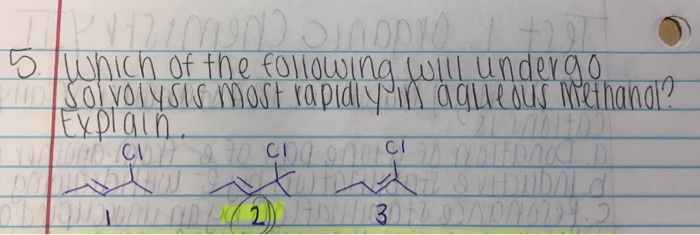 5. Which of the following will undergo
solvolysis most rapidly in aqueous methanol?
Explain.
Cl Cl Cl
1 2 3